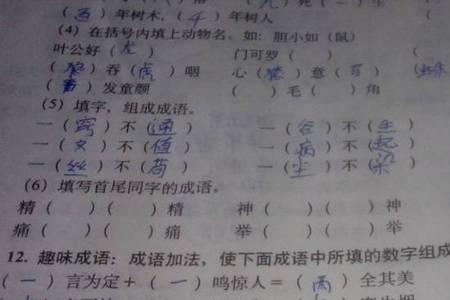 (百)年树木,(十)年树人
(4)在括号内填上动物名。如:胆小如(鼠)
叶公好(龙) 门可罗( )
(狼)吞(虎)咽 心(猿)意(马)
( )发童颜 ( )毛( )角
(5)填字,组成成语。
一(窍)不(通) 一(谷)不(生)
一(文)不(值) 一(病)不(起)
一(丝)不(苟) 一(尘)不(染)
(6)填写首尾同字的成语。
精( )( )精 神( )( )神
痛( )( )痛 举( )( )举
12. 趣味成语:成语加法,使下面成语中所填的数字组成
(一)言为定+(一)鸣惊人=(两)全其美